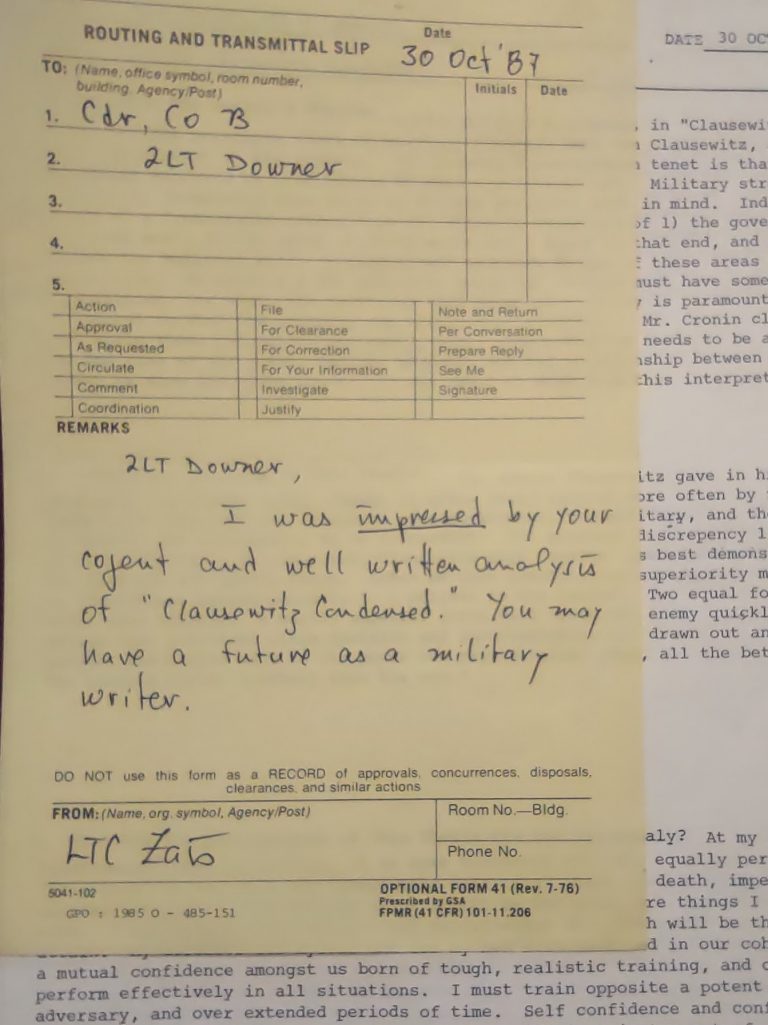 ROUTING AND TRANSMITTAL SLIP
Date
30 Oct '87
TO: (Name, office symbol, room number,
building, Agency/Post)
Initials
Date
1. Cdr, Co B
2. 2LT Downer
3.
4.
5.
Action File Note and Return
Approval For Clearance Per Conversation
As Requested For Correction Prepare Reply
Circulate For Your Information See Me
Comment Investigate Signature
Coordination Justify
REMARKS
2LT Downer,
I was impressed by your
cogent and well written analysis
of "Clausewitz Condensed." You may
have a future as a military
writer.
DO NOT use this form as a RECORD of approvals, concurrences, disposals,
clearances, and similar actions
FROM: (Name, org. symbol, Agency/Post)
Room No.—Bldg.
LTC
Phone No.
5041-102
OPTIONAL FORM 41 (Rev. 7-76)
Prescribed by GSA
FPMR (41 CFR) 101-11.206
GPO : 1985 O - 485-151
DATE 30
, in
Clausewitz,
tenet is
Military
in mind.
of 1) the
that end, and
these areas
must have
is paramount
Mr. Cronin
needs to be
between
this
gave in
more often by
and
discrepency
best
superiority
Two equal
enemy
drawn out
, all the
At my
equally
death,
things I
will be
in our
a mutual confidence amongst us born of tough, realistic training, and
perform effectively in all situations. I must train opposite a potent
adversary, and over extended periods of time. Self confidence and